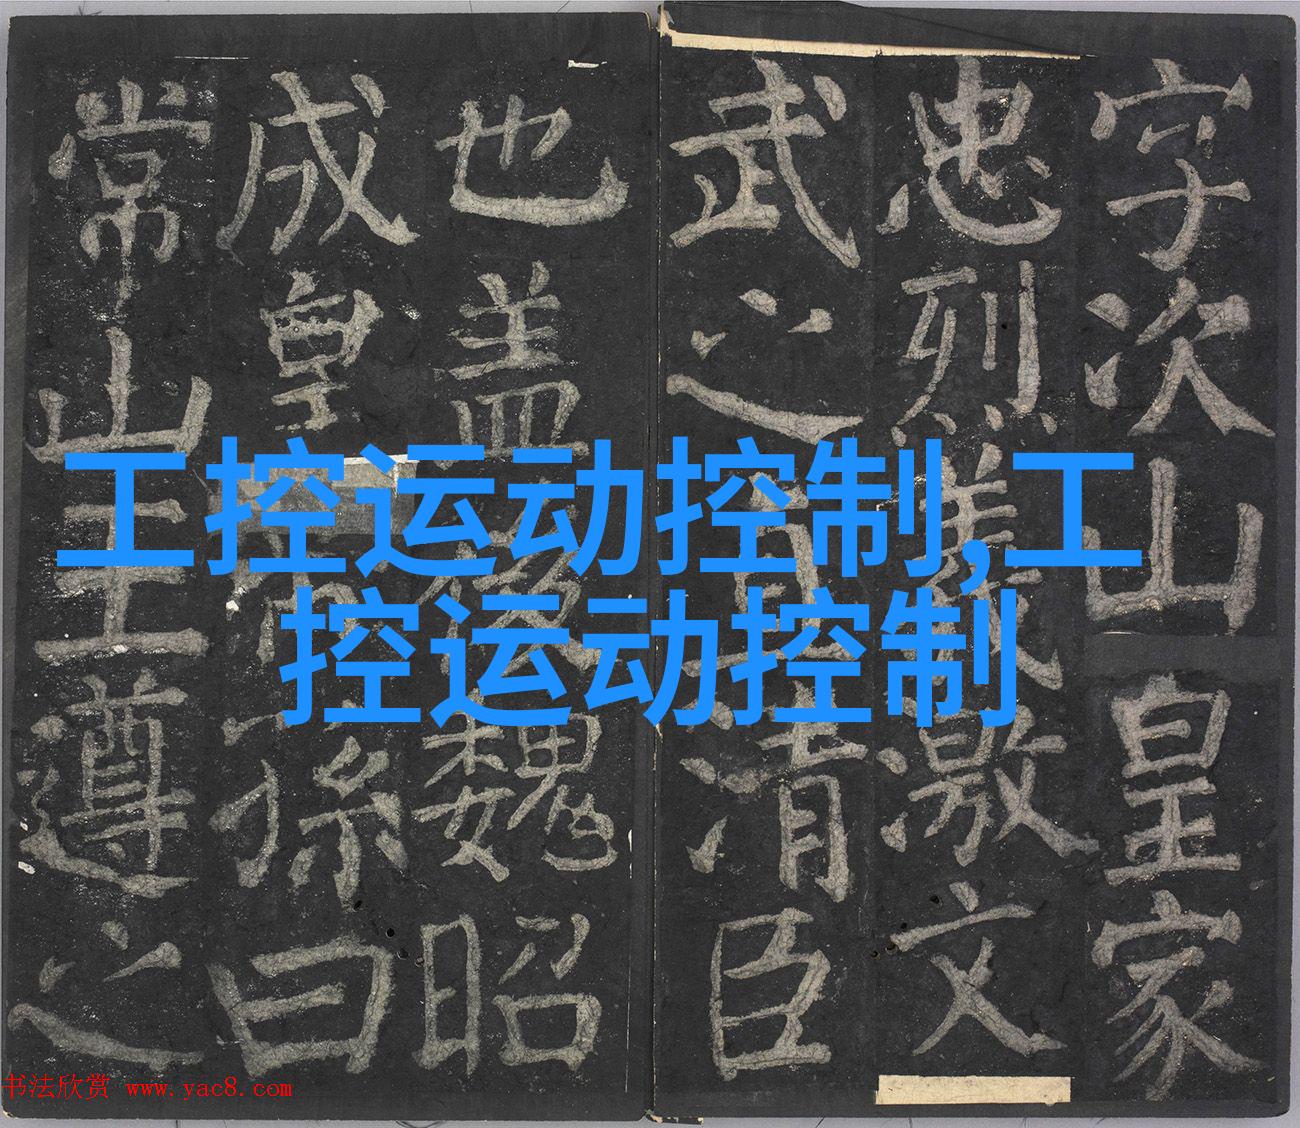 工控运动控制,工
控运动控制
字次山皇家
忠烈義激文
武之直清臣
也盖後魏昭
成皇帝孫曰
常山王遵之
书法欣赏 www.yac8.com